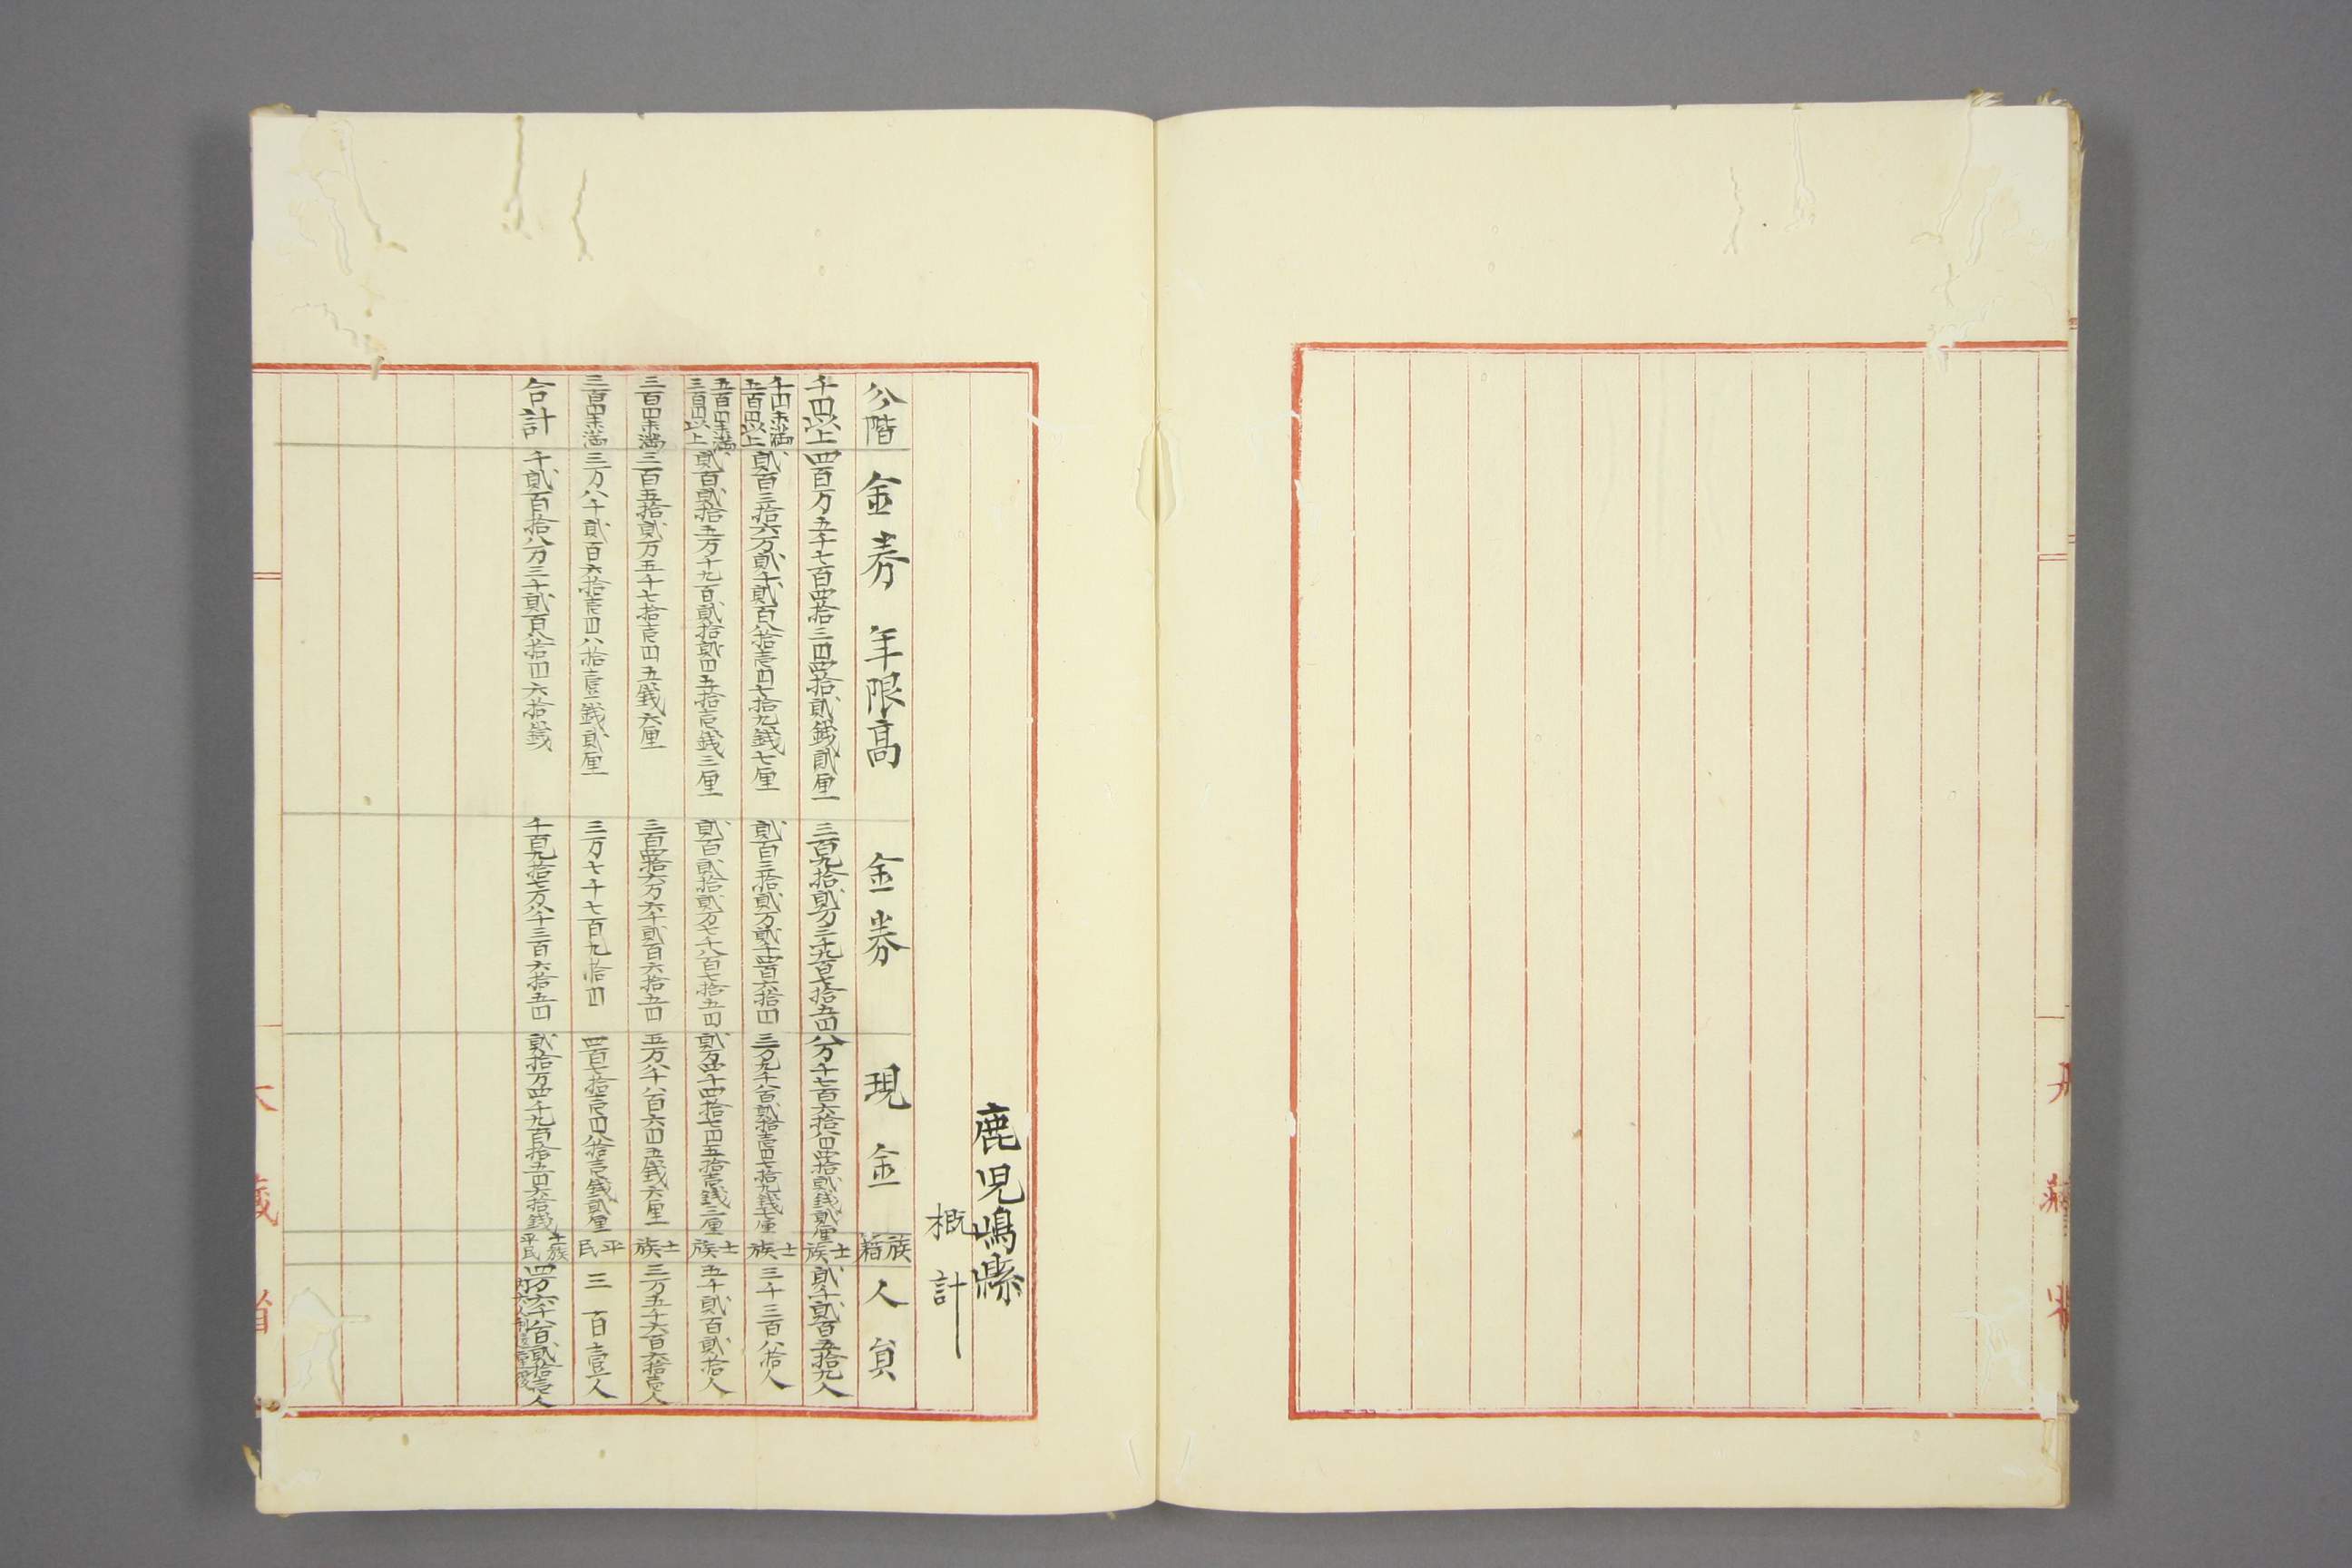 鹿児嶋縣
概計
分階 金券年限高 金券 現金 族籍 人員
千円以上 四百万五千七百四拾三円四拾貳銭貳厘 三百九拾貳万三千九百七拾五円 八万千七百六拾八円四拾貳銭貳厘 士族 貳千貳百五拾九人
千円未満五百円以上 貳百三拾六万貳千貳百八拾壱円七拾九銭七厘 貳百三拾貳万貳千四百六拾円 三万九千八百貳拾壱円七拾九銭七厘 士族 三千三百八拾人
五百円未満三百円以上 貳百貳拾五万千九百貳拾貳円五拾壱銭三厘 貳百貳拾貳万七千八百七拾五円 貳万四千四拾七円五拾壱銭三厘 士族 五千貳百貳拾人
三百円未満 三百五拾貳万五千七拾壱円五銭六厘 三百四拾六万六千貳百六拾五円 五万八千八百六円五銭六厘 士族 三万五千六百六拾壱人
三百円未満 三万八千貳百六拾壱円八拾壹銭貳厘 三万七千七百九拾円 四百七拾壱円八拾壱銭貳厘 平民 三百壹人
合計 千貳百拾八万三千貳百八拾円六拾銭 千百九拾七万八千三百六拾五円 貳拾万四千九百拾五円六拾銭 士族平民 四万六千八百貳拾壱人